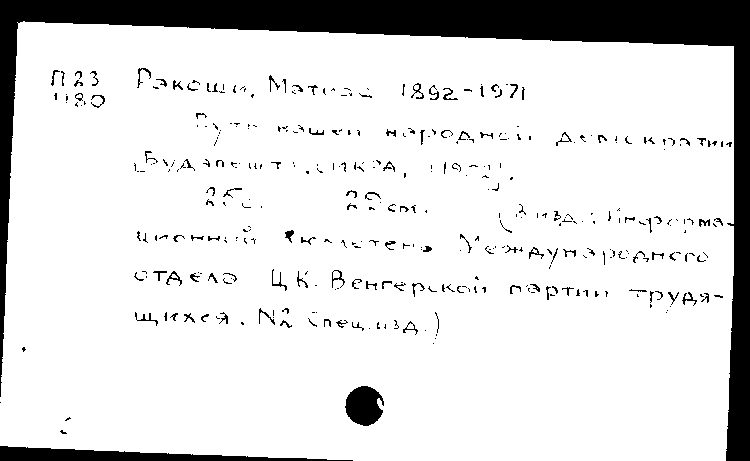 П23 Ракоши, Матиас 1892-1971
1180
Путь нашей народной демократии
[Будапешт, СИКРА,
25с. 22см. (В изд.: Информа-
ционный бюллетень Международного
отдела ЦК. Венгерской партии трудя-
щихся. N2 Спец.изд.)